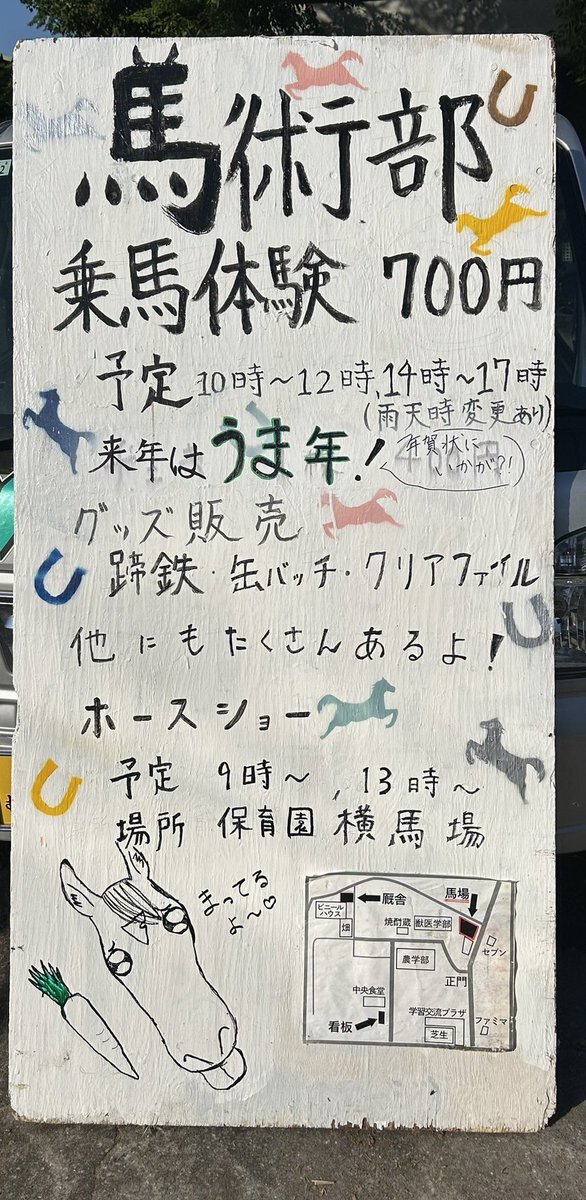 馬術部
乗馬体験 700円
予定 10時~12時,14時~17時
(雨天時変更あり)
来年はうま年!
年賀状に
いかが?!
グッズ販売
蹄鉄・缶バッチ・クリアファイル
他にもたくさんあるよ!
ホースショー
予定 9時~,13時~
場所 保育園横馬場
まってる
よ~♡
馬場
厩舎
ビニール
ハウス
畑
焼酎蔵
獣医学部
セブン
農学部
正門
中央食堂
学習交流プラザ
ファミマ
看板
芝生